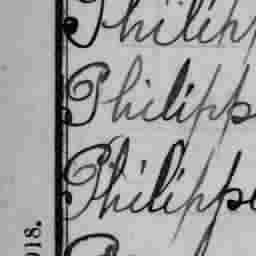 Philipp
Philipp
Philippe
918.